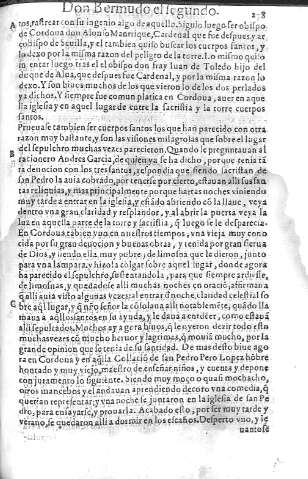 Don Bermudo el segundo. 258
tos, rastrear con su ingenio algo de aquello. Siguio luego ser obispo
de Cordoua don Alonso Manrique, Cardenal que fue despues, y ar
çobispo de Seuilla, y el tambien quiso buscar los cuerpos santos, y
lo dexo por la misma razon del peligro de la torre. Lo mismo quiso
intentar luego tras el el obispo don fray Iuan de Toledo hijo del
duque de Alua, que despues fue Cardenal, y por la misma razon lo
dexo. Y son biuos muchos de los que vieron lo de los dos perlados
ya dichos. Y siempre fue comun platica en Cordoua, auer en aque
lla iglesia y en aquel lugar de entre la sacristia y la torre cuerpos
santos.
Prueuase tambien ser cuerpos santos los que han parecido con otra
razon muy bastante, y son las visiones milagrosas que sobre el lugar
B del sepulchro muchas vezes parecieron. Quando le preguntauan al
racionero Andres Garcia, de quien ya se ha dicho, porque tenia tã
ta deuocion con los tres santos, respondia que siendo sacristan de
san Pedro la auia cobrado, por tenerse por cierto, estauan alli sus san
tas reliquias, y mas principalmente porque hartas noches viniendo
muy tarde a entrar en la iglesia, y estãdo abriendo cõ la llaue, veya
dentro vna gran claridad y resplandor, y al abrir la puerta veya la
luz en aquella parte de la torre y sacristia, q̃ luego se le desparecia.
En Cordoua tambien vuo en nuestros tiempos, vna vieja muy cono
cida por su gran deuocion y buenas obras, y tenida por gran sierua
de Dios, y siendo ella muy pobre, de limosna que le dieron, junto
para vna lampara, y hizola colgar sobre aquel lugar, donde agora
ha parecido el sepulchro, sustentandola, para que siempre ardiesse,
de limosnas, y quedadose alli muchas noches en oracion, affirmaua
C q̃ alli auia visto algunas vezes al entrar d noche, claridad celestial so
bre aq̃l lugar, y q̃ nr̃o señor la cõsolaua alli notablemẽte, quãdo lla
maua a aq̃llos santos en su ayuda, y le daua a entẽder, como estauã
alli sepultados. Muchos ay agora biuos, q̃ le oyeron dezir todo esto
muchas vezes cõ mucho heruor y lagrimas, q̃ mouiã mucho, por la
grande opinion que se tenia de su santidad. De mas desto biue ago
ra en Cordoua y en aq̃lla Collacion de san Pedro Pero Lopez hõbre
honrado y muy viejo, maestro de enseñar niños, y cuenta y depone
con juramento lo siguiente. Siendo muy moço o quasi mochacho,
otros mancebos y el andauan aprendiendo de coro vna comedia, q̃
querian representar: y vna noche se juntaron en la iglesia de san Pe
dro, para ensayarse, y prouarla. Acabado esto, por ser muy tarde y
verano, se quedaron alli a dormir en los escaños. Desperto vno, y le
uantose